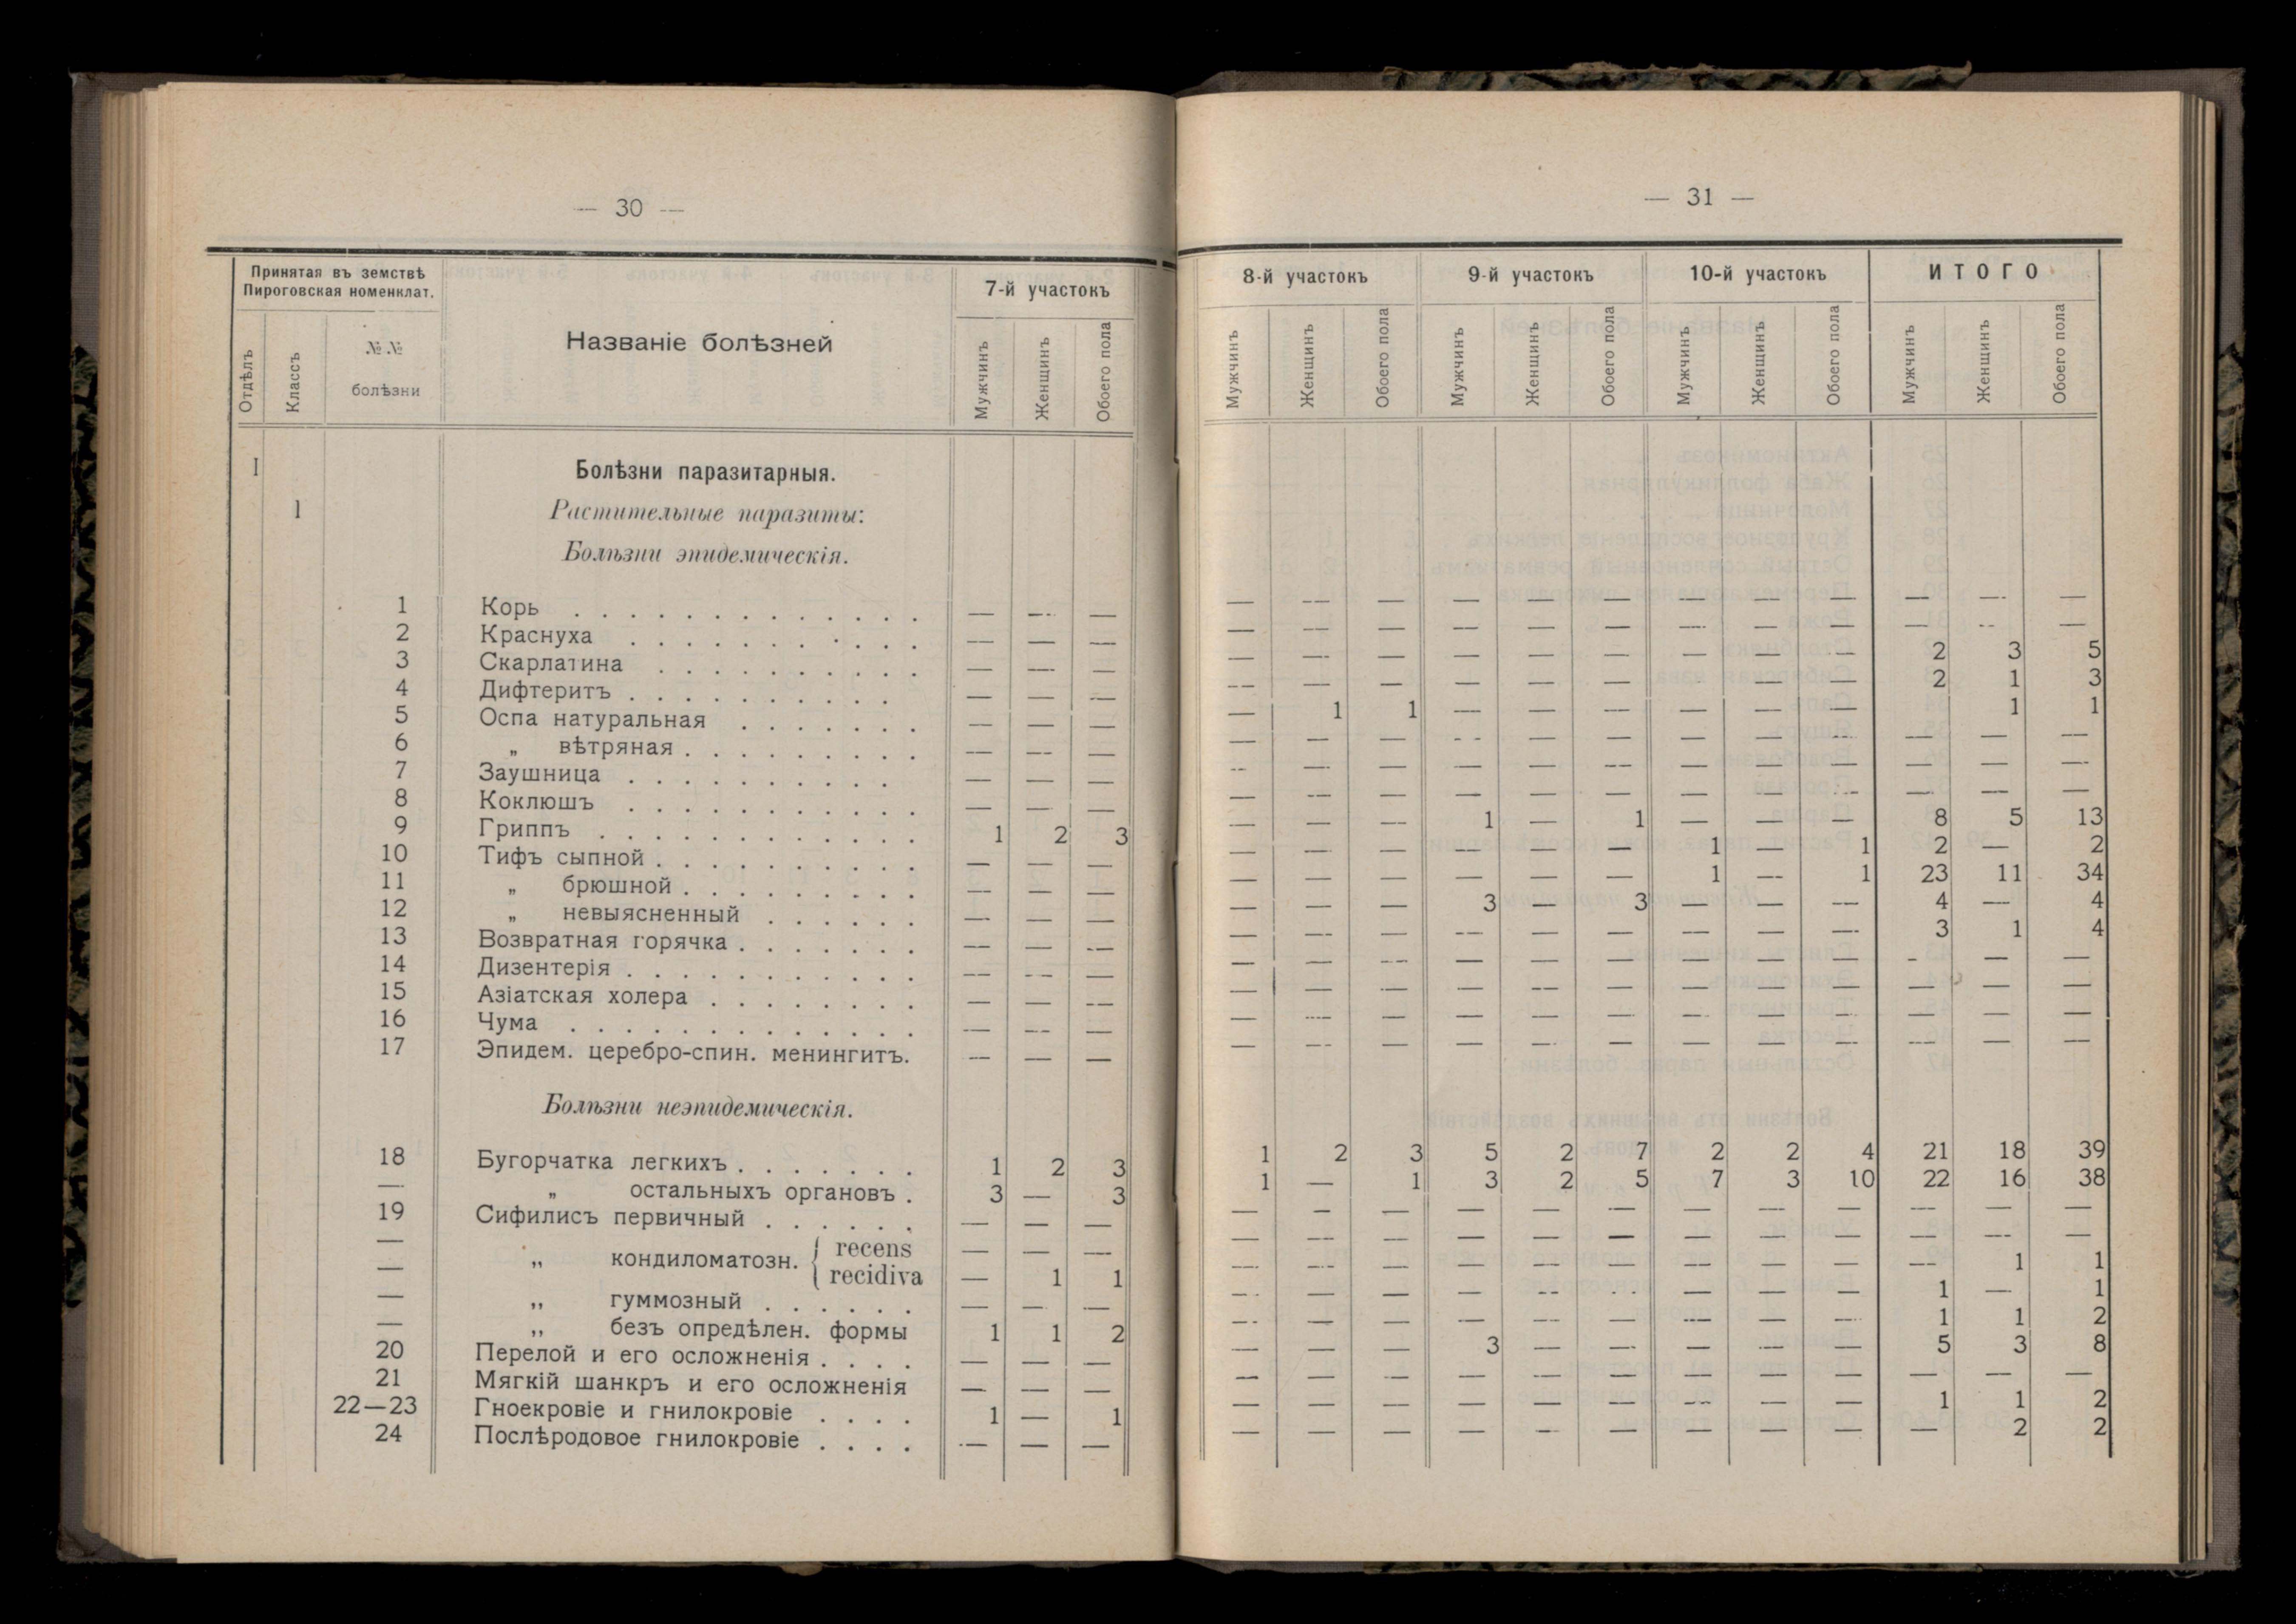 — 30 —
Принятая въ земствѣ
Пироговская номенклат.
Отдѣлъ
Классъ
№№
болѣзни
Названіе болѣзней
7-й участокъ
Мужчинъ
Женщинъ
Обоего пола
I Болѣзни паразитарныя.
1 Растительные паразиты:
Болѣзни эпидемическія.
1 Корь . . . . . . . . . . . . . — — —
2 Краснуха . . . . . . . . . . . — — —
3 Скарлатина . . . . . . . . . . — — —
4 Дифтеритъ . . . . . . . . . . — — —
5 Оспа натуральная . . . . . . . — — —
6 „ вѣтряная . . . . . . . . . — — —
7 Заушница . . . . . . . . . . — — —
8 Коклюшъ . . . . . . . . . . . — — —
9 Гриппъ . . . . . . . . . . . . 1 2 3
10 Тифъ сыпной . . . . . . . . . . — — —
11 „ брюшной . . . . . . . . . — — —
12 „ невыясненный . . . . . . — — —
13 Возвратная горячка . . . . . . . — — —
14 Дизентерія . . . . . . . . . . . — — —
15 Азіатская холера . . . . . . . . — — —
16 Чума . . . . . . . . . . . . . — — —
17 Эпидем. церебро-спин. менингитъ. — — —
Болѣзни неэпидемическія.
18 Бугорчатка легкихъ . . . . . . . 1 2 3
— „ остальныхъ органовъ . 3 — 3
19 Сифилисъ первичный . . . . . . — — —
— „ кондиломатозн. { recens — — —
— recidiva — 1 1
— „ гуммозный . . . . . . — — —
— „ безъ опредѣлен. формы 1 1 2
20 Перелой и его осложненія . . . . — — —
21 Мягкій шанкръ и его осложненія — — —
22—23 Гноекровіе и гнилокровіе . . . . 1 — 1
24 Послѣродовое гнилокровіе . . . . — — —
— 31 —
8-й участокъ 9-й участокъ 10-й участокъ ИТОГО
Мужчинъ Женщинъ Обоего пола Мужчинъ Женщинъ Обоего пола Мужчинъ Женщинъ Обоего пола Мужчинъ Женщинъ Обоего пола
— — — — — — — — — — — —
— — — — — — — — — — — —
— — — — — — — — — 2 3 5
— — — — — — — — — 2 1 3
— 1 1 — — — — — — 1 1
— — — — — — — — — — — —
— — — — — — — — — — — —
— — — — — — — — — — — —
— — — 1 — 1 — — — 8 5 13
— — — — — — 1 — 1 2 — 2
— — — — — — 1 — 1 23 11 34
— — — 3 — 3 — — — 4 — 4
— — — — — — — — — 3 1 4
— — — — — — — — — — — —
— — — — — — — — — — — —
— — — — — — — — — — — —
— — — — — — — — — — — —
1 2 3 5 2 7 2 2 4 21 18 39
1 — 1 3 2 5 7 3 10 22 16 38
— — — — — — — — — — — —
— — — — — — — — — — — —
— — — — — — — — — — 1 1
— — — — — — — — — 1 — 1
— — — — — — — — — 1 1 2
— — — 3 — — — — — 5 3 8
— — — — — — — — — — — —
— — — — — — — — — 1 1 2
— — — — — — — — — — 2 2